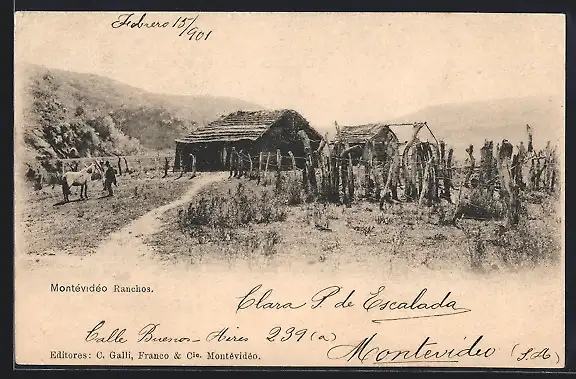 Febrero 15/901
Montévidéo Ranchos.
Clara P. de Escalada
Calle Buenos-Aires 239(a)
Montevideo (S.A)
Editores: C. Galli, Franco & Cie. Montévidéo.